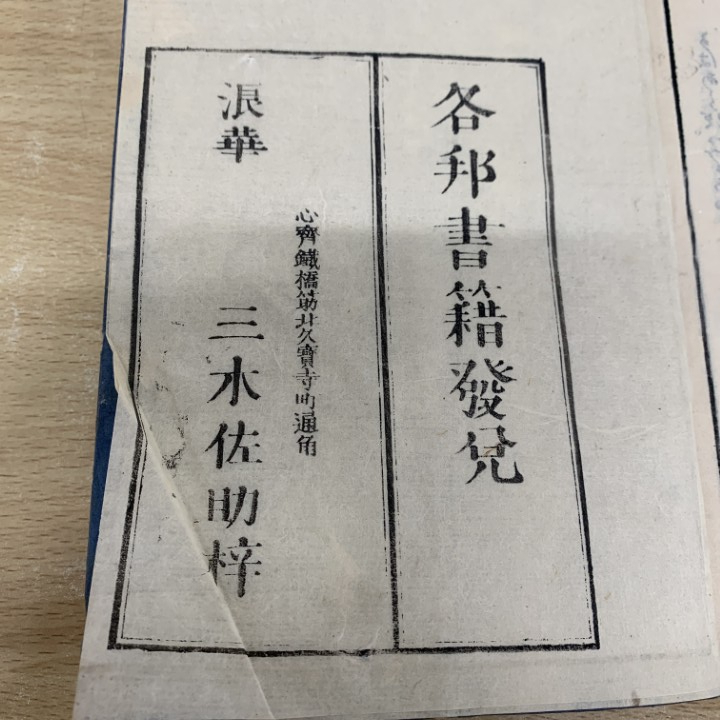 各邦書籍發兌
心齊鐵橋筋北久寶寺町通角
浪華
三木佐助梓